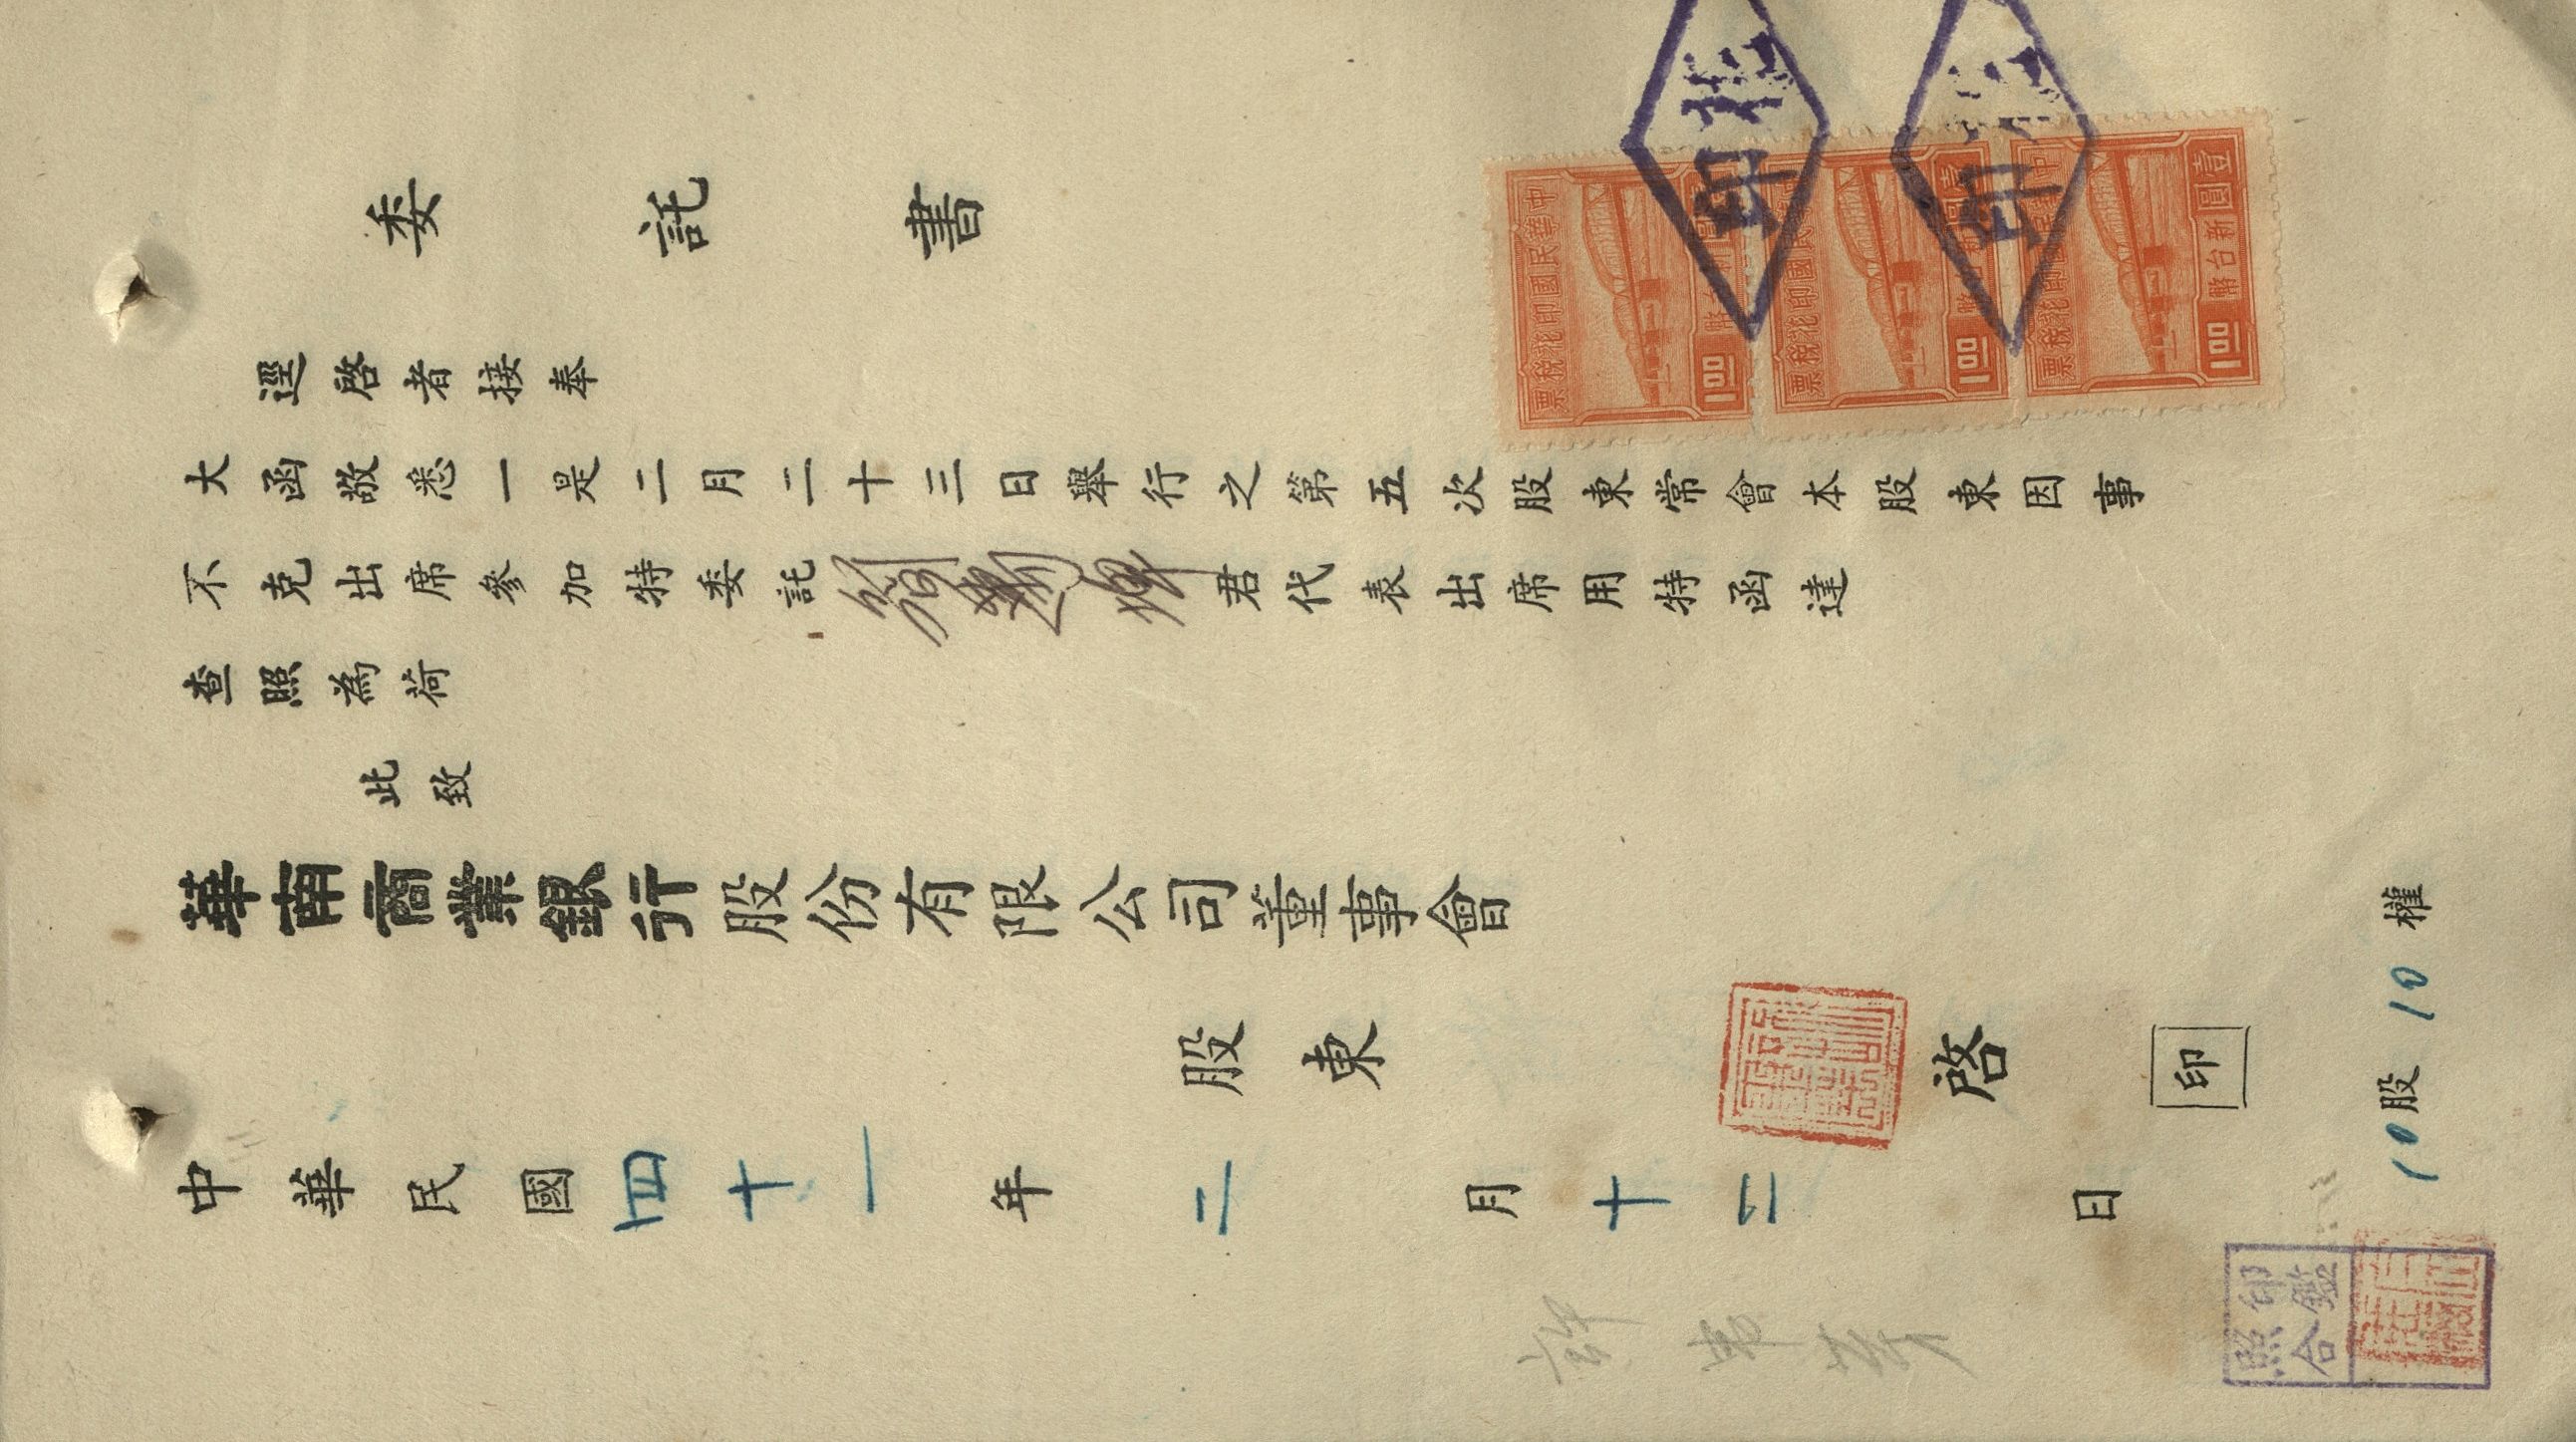 委託書
逕啓者接奉
大函敬悉一是二月二十三日舉行之第五次股東常會本股東因事
不克出席參加特委託劉 君代表出席用特函達
查照為荷
此致
華南商業銀行股份有限公司董事會
股東 啓 印
中華民國四十一年二月十二日
10股10權
印鑑
照合
中華民國印花稅票
壹圓
新台幣
1.00
中華民國印花稅票
壹圓
新台幣
1.00
中華民國印花稅票
壹圓
新台幣
1.00
印
印